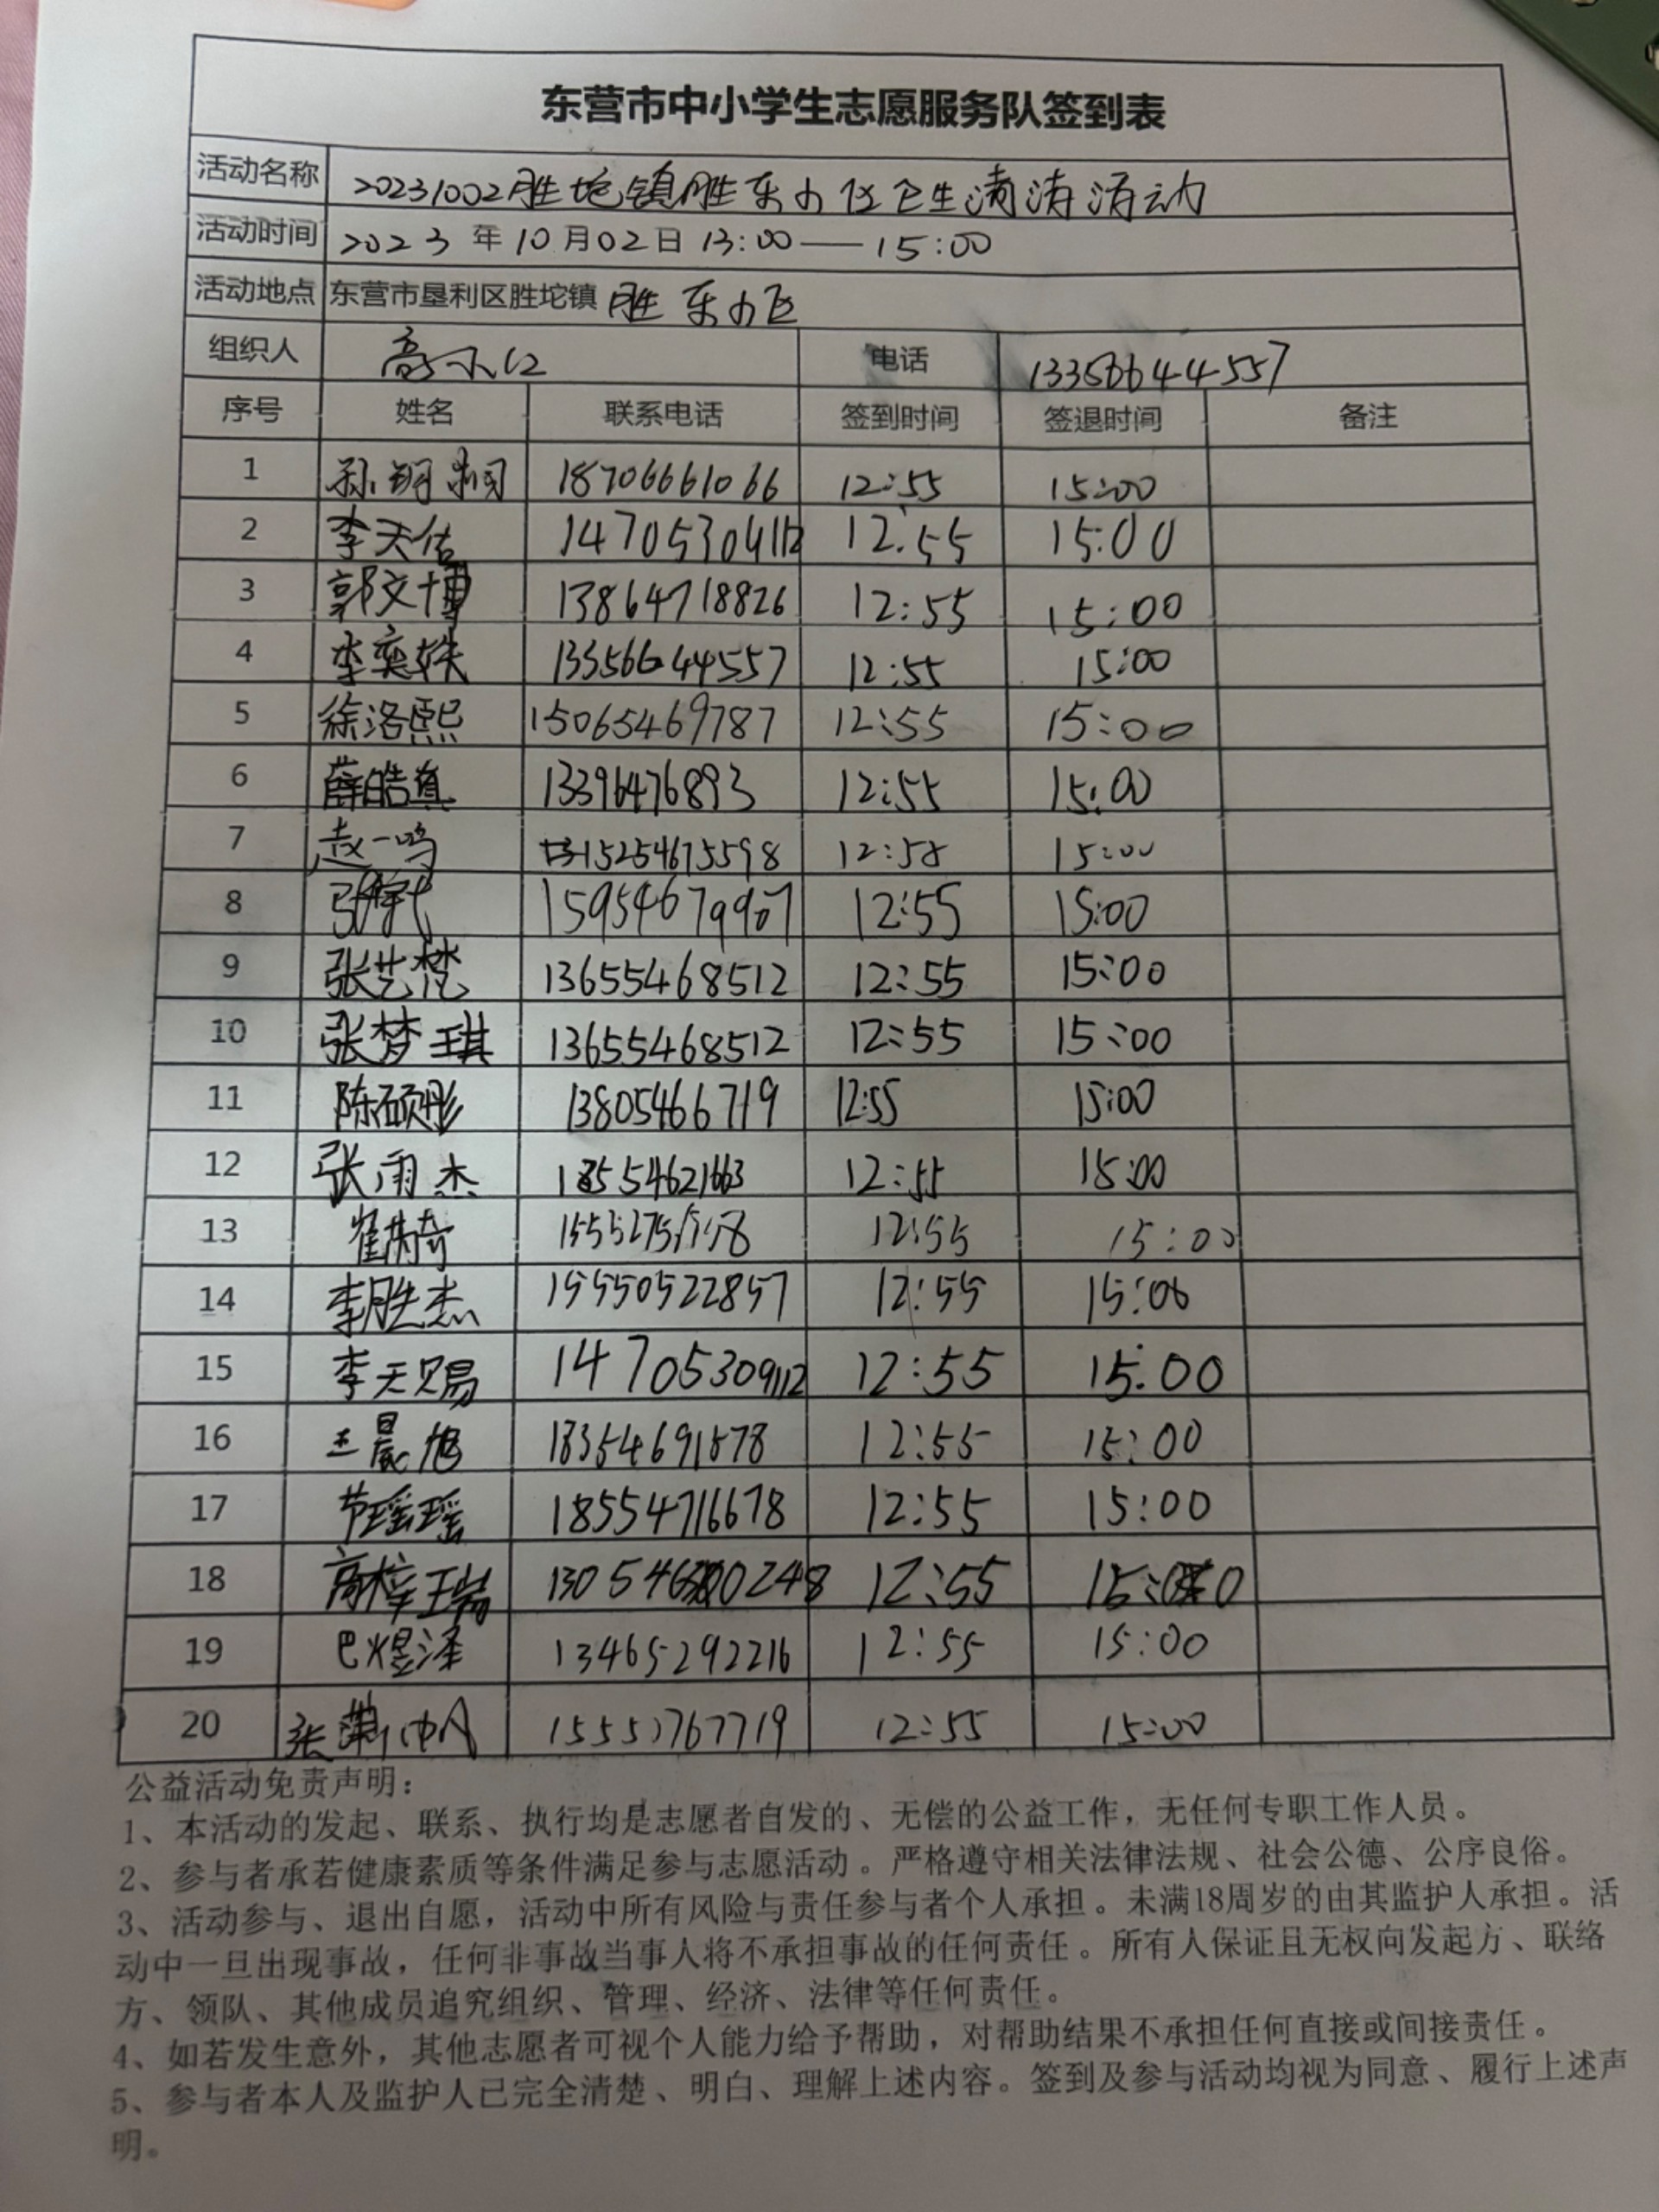 东营市中小学生志愿服务队签到表
活动名称 20231002胜坨镇胜东小区卫生清洁活动
活动时间 2023年10月02日13:00——15:00
活动地点 东营市垦利区胜坨镇 胜东小区
组织人 高小红 电话 13356644557
序号 姓名 联系电话 签到时间 签退时间 备注
1 孙 18706661066 12:55 15:00
2 李天佑 12:55 15:00
3 郭文博 13864718826 12:55 15:00
4 李奕轶 13356644557 12:55 15:00
5 徐洛熙 15065469787 12:55 15:00
6 薛皓真 13396476893 12:55 15:00
7 赵一鸣 15254675598 12:58 15:00
8 张 12:55 15:00
9 张艺梵 13655468512 12:55 15:00
10 张梦琪 13655468512 12:55 15:00
11 陈硕彤 13805466719 12:55 15:00
12 张雨杰 18554621663 12:55 15:00
13 崔 12:55 15:00
14 李胜杰 15550522857 12:55 15:00
15 李天赐 14705309112 12:55 15:00
16 王晨旭 18354691578 12:55 15:00
17 节瑶瑶 18554716678 12:55 15:00
18 高梓瑞 12:55 15:00
19 巴煜泽 13465292216 12:55 15:00
20 张 帆 12:55 15:00
公益活动免责声明：
1、本活动的发起、联系、执行均是志愿者自发的、无偿的公益工作，无任何专职工作人员。
2、参与者承若健康素质等条件满足参与志愿活动。严格遵守相关法律法规、社会公德、公序良俗。
3、活动参与、退出自愿，活动中所有风险与责任参与者个人承担。未满18周岁的由其监护人承担。活
动中一旦出现事故，任何非事故当事人将不承担事故的任何责任。所有人保证且无权向发起方、联络
方、领队、其他成员追究组织、管理、经济、法律等任何责任。
4、如若发生意外，其他志愿者可视个人能力给予帮助，对帮助结果不承担任何直接或间接责任。
5、参与者本人及监护人已完全清楚、明白、理解上述内容。签到及参与活动均视为同意、履行上述声
明。